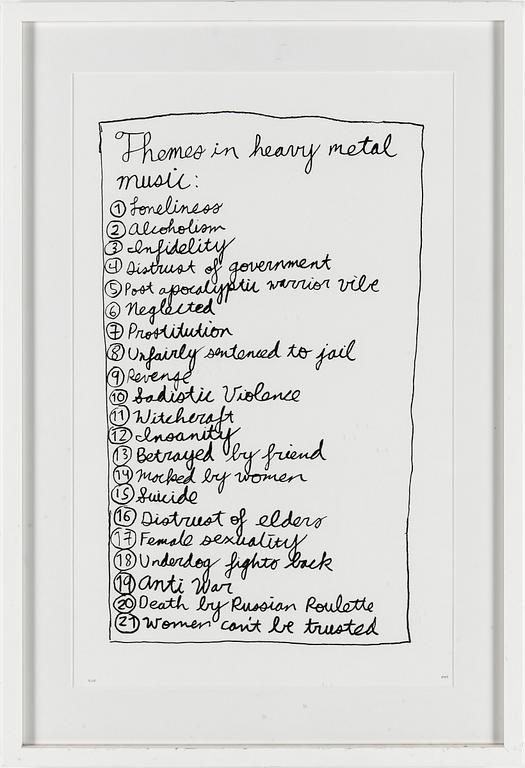 Themes in heavy metal
music:
① Loneliness
② Alcoholism
③ Infidelity
④ Distrust of government
⑤ Post apocalyptic warrior vibe
⑥ Neglected
⑦ Prostitution
⑧ Unfairly sentenced to jail
⑨ Revenge
⑩ Sadistic Violence
⑪ Witchcraft
⑫ Insanity
⑬ Betrayed by friend
⑭ Mocked by women
⑮ Suicide
⑯ Distrust of elders
⑰ Female sexuality
⑱ Underdog fights back
⑲ Anti War
⑳ Death by Russian Roulette
㉑ Women can't be trusted